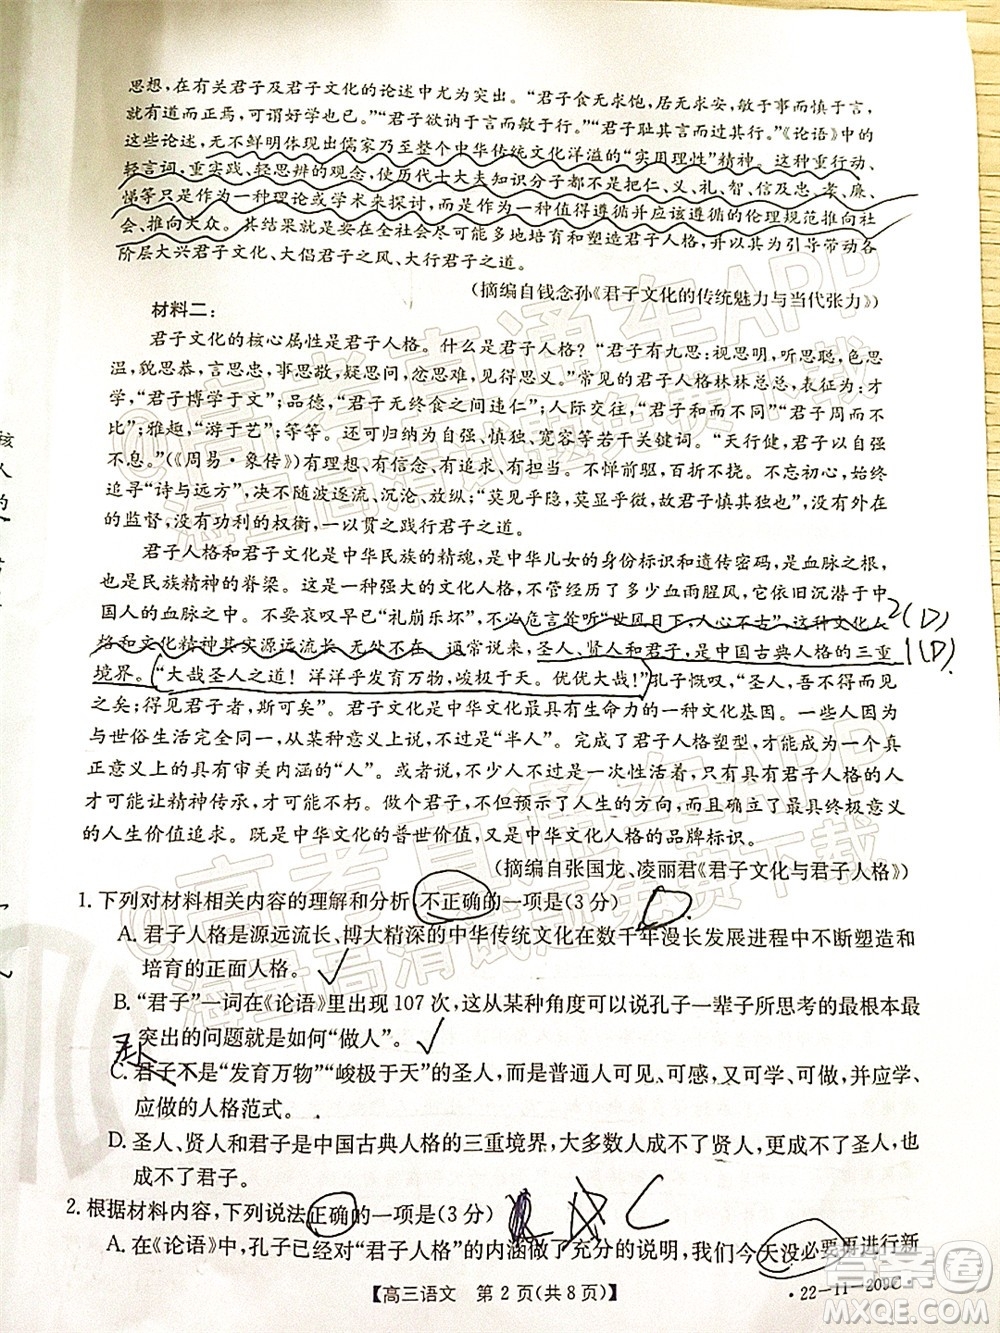 思想，在有关君子及君子文化的论述中尤为突出。“君子食无求饱，居无求安，敏于事而慎于言，
就有道而正焉，可谓好学也已。”“君子欲讷于言而敏于行。”“君子耻其言而过其行。”《论语》中的
这些论述，无不鲜明体现出儒家乃至整个中华传统文化洋溢的“实用理性”精神。这种重行动、
轻言词，重实践、轻思辨的观念，使历代士大夫知识分子都不是把仁、义、礼、智、信及忠、孝、廉、
悌等只是作为一种理论或学术来探讨，而是作为一种值得遵循并应该遵循的伦理规范推向社
会、推向大众。其结果就是在全社会尽可能多地培育和塑造君子人格，并以其为引导带动各
阶层大兴君子文化、大倡君子之风、大行君子之道。
（摘编自钱念孙《君子文化的传统魅力与当代张力》）
材料二：
君子文化的核心属性是君子人格。什么是君子人格？“君子有九思：视思明，听思聪，色思
温，貌思恭，言思忠，事思敬，疑思问，忿思难，见得思义。”常见的君子人格林林总总，分为：才
学，“君子博学于文”；品德，“君子无终食之间违仁”；人际交往，“君子和而不同”“君子周而不
比”；雅趣，“游于艺”；等等。仁义、担当、自强、慎独、宽容等都是关键词。“天行健，君子以自强
不息。”（《周易·象传》）有理想、有信念、有追求、有担当。不惮前驱，百折不挠。不忘初心，始终
追寻“诗与远方”，决不随波逐流、沉沦、放纵；“莫见乎隐，莫显乎微，故君子慎其独也”，没有外在
的监督，没有功利的权衡，一以贯之践行君子之道。
君子人格和君子文化是中华民族的精魂，是中华儿女的身份标识和遗传密码，是中华文化
也是民族精神的脊梁。这是一种强大的文化人格，不管经历了多少血雨腥风，它依旧沉潜于中
国人的血脉之中。不要哀叹早已“礼崩乐坏”，不必危言耸听“世风日下，人心不古”，这种文化人
格和文化精神其实源远流长、无处不在。通常说来，圣人、贤人和君子，是中国古典人格的三重
境界。“大哉圣人之道！洋洋乎发育万物，峻极于天。优优大哉！”孔子慨叹，“圣人，吾不得而见
之矣；得见君子者，斯可矣。”君子文化是中华文明最具有生命力的一种文化基因。一些人因为
与世俗生活完全同一，从某种意义上讲，最多只是“半人”。完成了君子人格塑型，才可以称得
上的具有审美内涵的“人”。或者说，唯有抵达君子人格的至高境界，人才可以称之为人，人
才可能精神传承，才可能不朽。做个君子，不但预示了人生的方向和高度，而且是最具终极意义
的人生价值追求。既是中华文化的普世价值，又是中华文化人格的品牌标识。
（摘编自张国龙、凌丽君《君子文化与君子人格》）
1. 下列对材料相关内容的理解和分析，不正确的一项是（3 分）
A. 君子人格是源远流长、博大精深的中华传统文化在数千年漫长发展进程中不断塑造和
培育的正面人格。
B. “君子”一词在《论语》里出现 107 次，这从某种角度可以说孔子一辈子所思考的最根本最
突出的问题就是如何“做人”。
C. 君子不是“发育万物”“峻极于天”的圣人，而是现实生活中可见、可感，又可学、可做，并应学、
应做的人格范式。
D. 圣人、贤人和君子是中国古典人格的三重境界，大多数人成不了贤人，更成不了圣人，也
成不了君子。
2. 根据材料内容，下列说法正确的一项是（3 分） C
A. 在《论语》中，孔子已经对“君子人格”的内涵做了充分的说明，我们今天没必要再进行新
【高三语文 第 2 页（共 8 页）】
·22-11-209C·
2(D)
1(D)